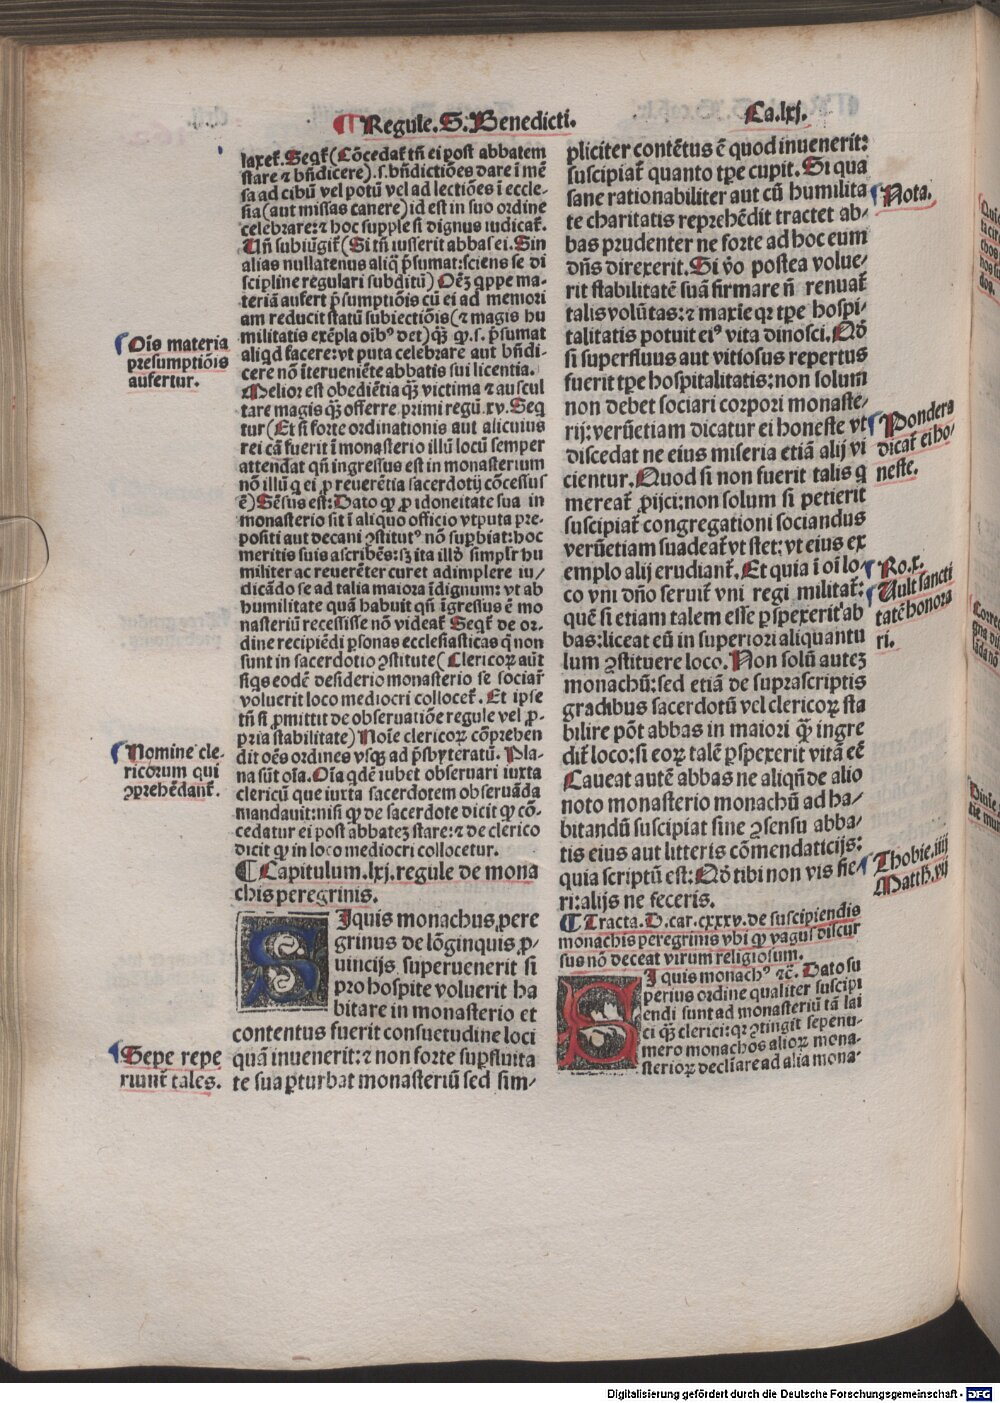 ¶ Regule. S. Benedicti.
Ca. lxj.
laxet᷑. Seqt᷑ (Cōcedat᷑ tn̄ ei post abbatem
stare ⁊ bn̄dicere). s. bn̄dictiōes dare ī mē
sa ad cibū vel potū vel ad lectiōes ī eccle-
sia (aut missas canere) id est in suo ordine
celebrare: ⁊ hoc supple si dignus iudicat᷑.
Un̄ subiūgit᷑ (Si tn̄ iusserit abbas ei. Sin
alias nullatenus aliq̄ p̄sumat: sciens se di
scipline regulari subditū) Oēꝫ q̄ppe ma-
teriā aufert p̄sumptiōis cū ei ad memori
am reducit statū subiectiōis (⁊ magis hu
militatis exēpla oībꝰ det) q̄ꝫ ꝙ. s. p̄sumat
aliqd facere: vt puta celebrare aut bn̄di-
cere nō īterueniēte abbatis sui licentia.
Melior est obediētia q̄ꝫ victima ⁊ auscul
tare magis q̄ꝫ offerre. primi regū. xv. Seq
tur (Et si forte ordinationis aut alicuius
rei cā fuerit ī monasterio illū locū semper
attendat qn̄ ingressus est in monasterium
nō illū q ei ꝓ reuerētia sacerdotij cōcessus
ē) Sēsus est: Dato ꝙ ꝓ idoneitate sua in
monasterio sit ī aliquo officio vtputa pre-
positi aut decani ꝯstitutꝰ nō suꝑbiat: hoc
meritis suis ascribēs: sꝫ ita illd̓ simpl̓r hu
militer ac reuerēter curet adimplere iu/
dicādo se ad talia maiora īdignum: vt ab
humilitate quā habuit qn̄ īgressus ē mo
nasteriū recessisse nō videat᷑. Seqt᷑ de or-
dine recipiēdi ꝑsonas ecclesiasticas q̄ non
sunt in sacerdotio ꝯstitute (Clericoꝝ aūt
siqs eodē desiderio monasterio se sociar̄
voluerit loco mediocri collocet᷑. Et ipse
tn̄ si ꝓmittit de obseruatiōe regule vel ꝓ-
pria stabilitate) Noīe clericoꝝ cōprehen
dit oēs ordines vsqꝫ ad p̄sbyteratū. Pla-
na sūt oīa. Oīa qdē iubet obseruari iuxta
clericū que iuxta sacerdotem obseruāda
mandauit: nisi ꝙ de sacerdote dicit ꝙ cō-
cedatur ei post abbateꝫ stare: ⁊ de clerico
dicit ꝙ in loco mediocri collocetur.
¶ Capitulum. lxj. regule de mona
chis peregrinis.
SIquis monachus pere
grinus de lōginquis ꝓ-
uincijs superuenerit si
pro hospite voluerit ha
bitare in monasterio et
contentus fuerit consuetudine loci
quā inuenerit: ⁊ non forte suꝑfluita
te sua ꝑturbat monasteriū sed sim-
Oīs materia
presumptiōis
aufertur.
Nomine cle-
ricorum qui
ꝯprehēdant᷑.
Sepe repe
riunt᷑ tales.
pliciter contētus ē quod inuenerit:
suscipiat᷑ quanto tꝑe cupit. Si qua
sane rationabiliter aut cū humilita
te charitatis reprehēdit tractet ab-
bas prudenter ne forte ad hoc eum
dn̄s direxerit. Si v̓o postea volue/
rit stabilitatē suā firmare n̄ renuat᷑
talis volūtas: ⁊ maxīe qꝛ tꝑe hospi-
talitatis potuit eiꝰ vita dinosci. Qd̓
si superfluus aut vitiosus repertus
fuerit tꝑe hospitalitatis: non solum
non debet sociari corpori monaste-
rij: verūetiam dicatur ei honeste vt
discedat ne eius miseria etiā alij vi
cientur. Quod si non fuerit talis q
mereat᷑ ꝓijci: non solum si petierit
suscipiat᷑ congregationi sociandus
verūetiam suadeat᷑ vt stet: vt eius ex
emplo alij erudiant᷑. Et quia ī oī lo-
co vni dn̄o seruit᷑ vni regi militat᷑:
quē si etiam talem esse ꝑspexerit ab
bas: liceat eū in superiori aliquantu
lum ꝯstituere loco. Non solū auteꝫ
monachū: sed etiā de suprascriptis
gradibus sacerdotū vel clericoꝝ sta
bilire pōt abbas in maiori q̄ꝫ ingre
dit᷑ loco: si eoꝝ talē ꝑspexerit vitā eē
Caueat autē abbas ne aliqn̄ de alio
noto monasterio monachū ad ha-
bitandū suscipiat sine ꝯsensu abba/
tis eius aut litteris cōmendaticijs:
quia scriptū est: Qd̓ tibi non vis fie-
ri: alijs ne feceris.
¶ Tracta. D. car. cxxxv. de suscipiendis
monachis peregrinis vbi ꝙ vagus discur
sus nō deceat virum religiosum.
SI quis monachꝰ ⁊c̄. Dato su
perius ordine qualiter suscipi
endi sunt ad monasteriū tā lai
ci q̄ꝫ clerici: qꝛ ꝯtingit sepenu-
mero monachos alioꝝ mona-
sterioꝝ declīare ad alia mona-
Nota.
Pondera
dicat᷑ ei ho/
neste.
Ro. x.
Uult sancti
tatē honora
ri.
Thobie. iiij
Matth. vij
Digitalisierung gefördert durch die Deutsche Forschungsgemeinschaft - DFG